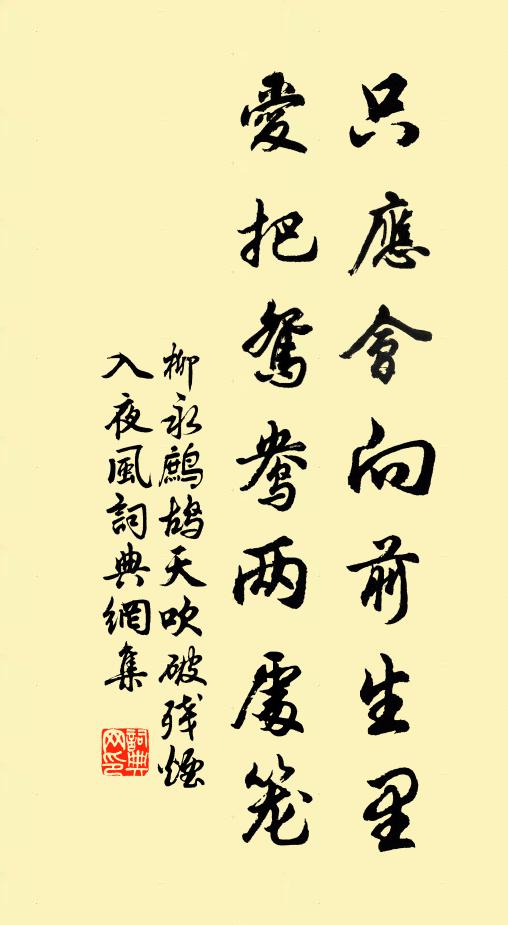 只應會向前生里
愛把鴛鴦兩處笼
柳永鷓鴣天吹破残煙
入夜風詞典網集
詞典
网印